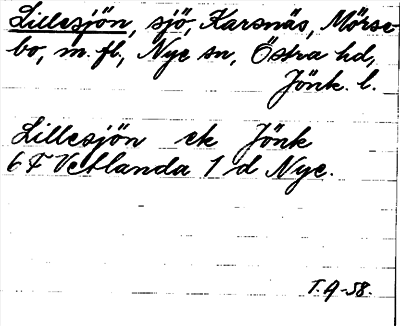 Lillesjön, sjö, Karsnäs, Mörse-
bo, m. fl., Nye sn, Östra hd,
Jönk. l.
Lillesjön ek Jönk
6 F Vetlanda 1 d Nye.
T. 9-58.